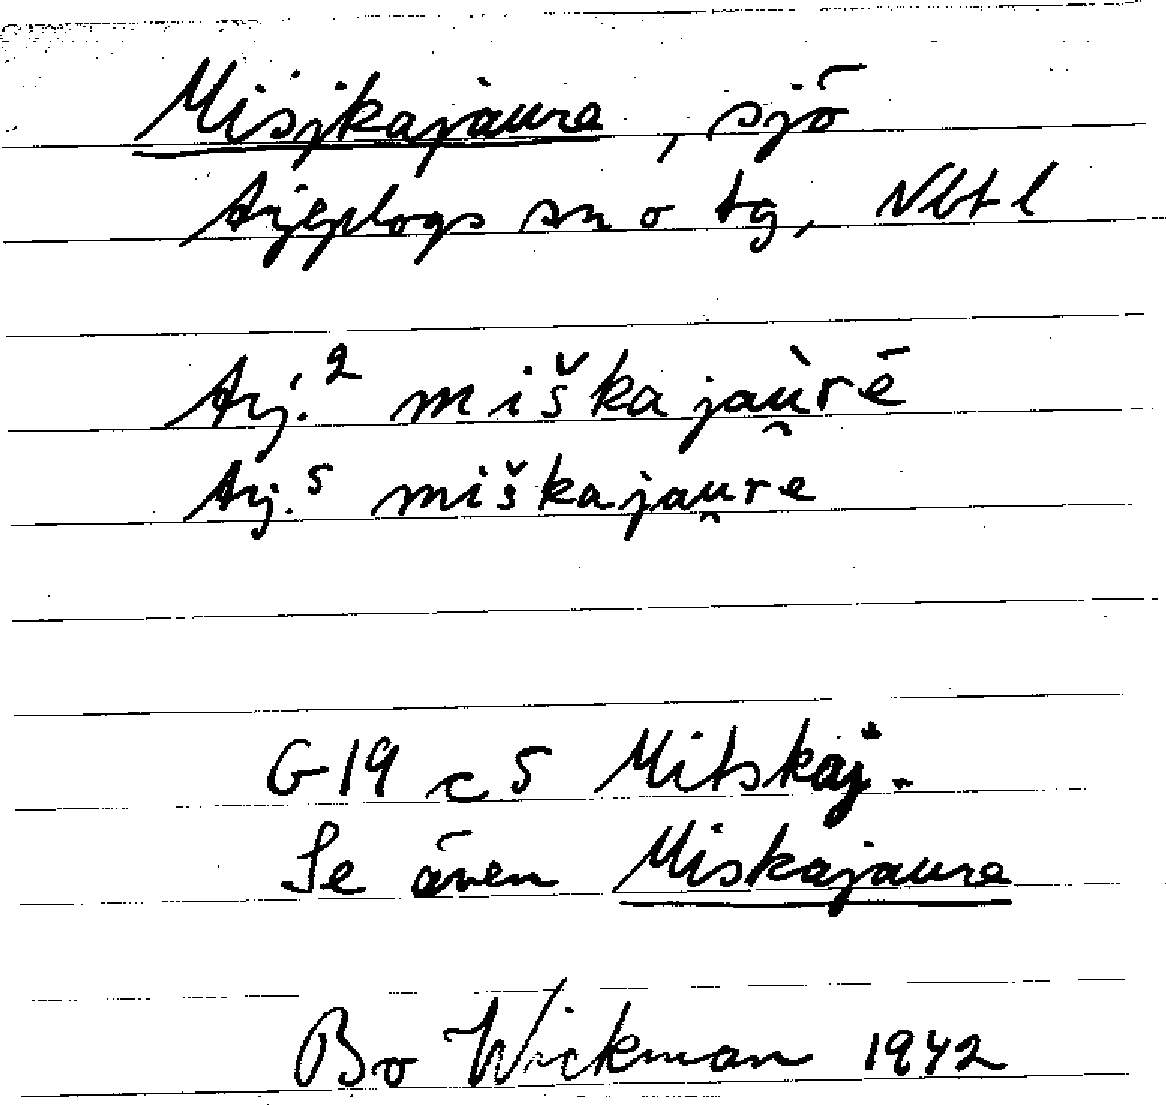 Misjkajaure, sjö
Arjeplogs sn o tg, Nbt l
Arj.² miškajaù̯rē
Arj.⁵ miškajau̯re
G19 c 5 Mitskaj.
Se även Miskajaure
Bo Wickman 1942